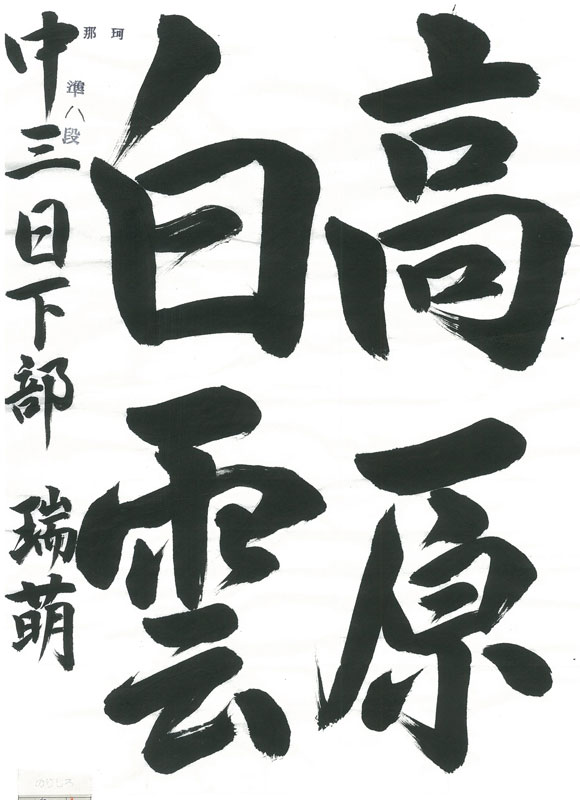 高原
白雲
中三日下部 瑞萌
準八段
珂那
のりしろ